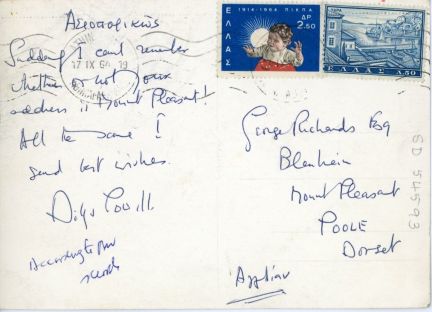 Αεροπορικῶς
Suddenly I can't remember
whether or not your
address is Mount Pleasant!
All the same!
Send best wishes.
Dilys Powell
According to your
records
17 IX 64 19
1914-1964 ΠΙΚΠΑ
ΕΛΛΑΣ
ΔΡ
2.50
ΕΛΛΑΣ
4.50
George Richards Esq
Blenheim
Mount Pleasant
POOLE
Dorset
Αγγλίαν
SD 54593